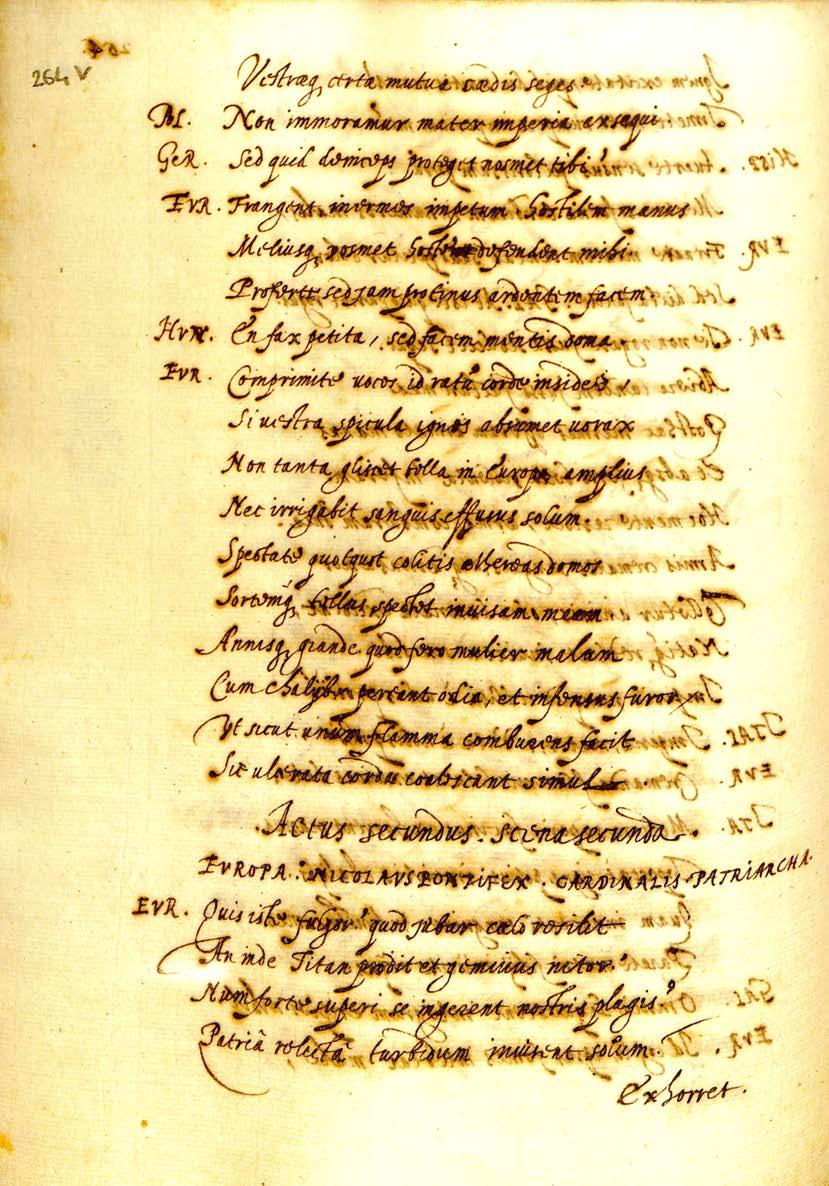 264 v
Vestræq, certa mutuæ cædis seges.
Pol. Non immoramur mater imperia exsequi
Ger. Sed quid deinceps proteget nosmet tibi?
Evr. Frangent inermes impetum hostilem manus
Meliusq, vosmet defendent mihi
Proferte sed jam protinus ardentem facem
Hvn. En fax petita, sed facem mentis doma
Evr. Comprimite voces id ratū corde insidet,
Si vestra spicula ignis absumet vorax
Non tanta gliscet bella in Europa amplius
Nec irrigabit sanguis effusus solum.
Spectate quotquot colitis æthereas domos
Sortemq, tellus spectet invisam meam
Annisq, grande quod fero mulier malum
Cum chalybe pereant odia, et infensus furor
Vt sicut unum flamma comburens facit
Sic ulcerata corda coalescant simul
Actus secundus. scena secunda.
EVROPA. NICOLAVS PONTIFEX. CARDINALIS PATRIARCHA.
EVR. Quis iste fulgor? quod jubar cælo resilit
An inde Titan prodit et geminus nitor?
Num forte superi se ingerent nostris plagis?
Patriâ relictâ turbidum invisent solum.
Exhorret.